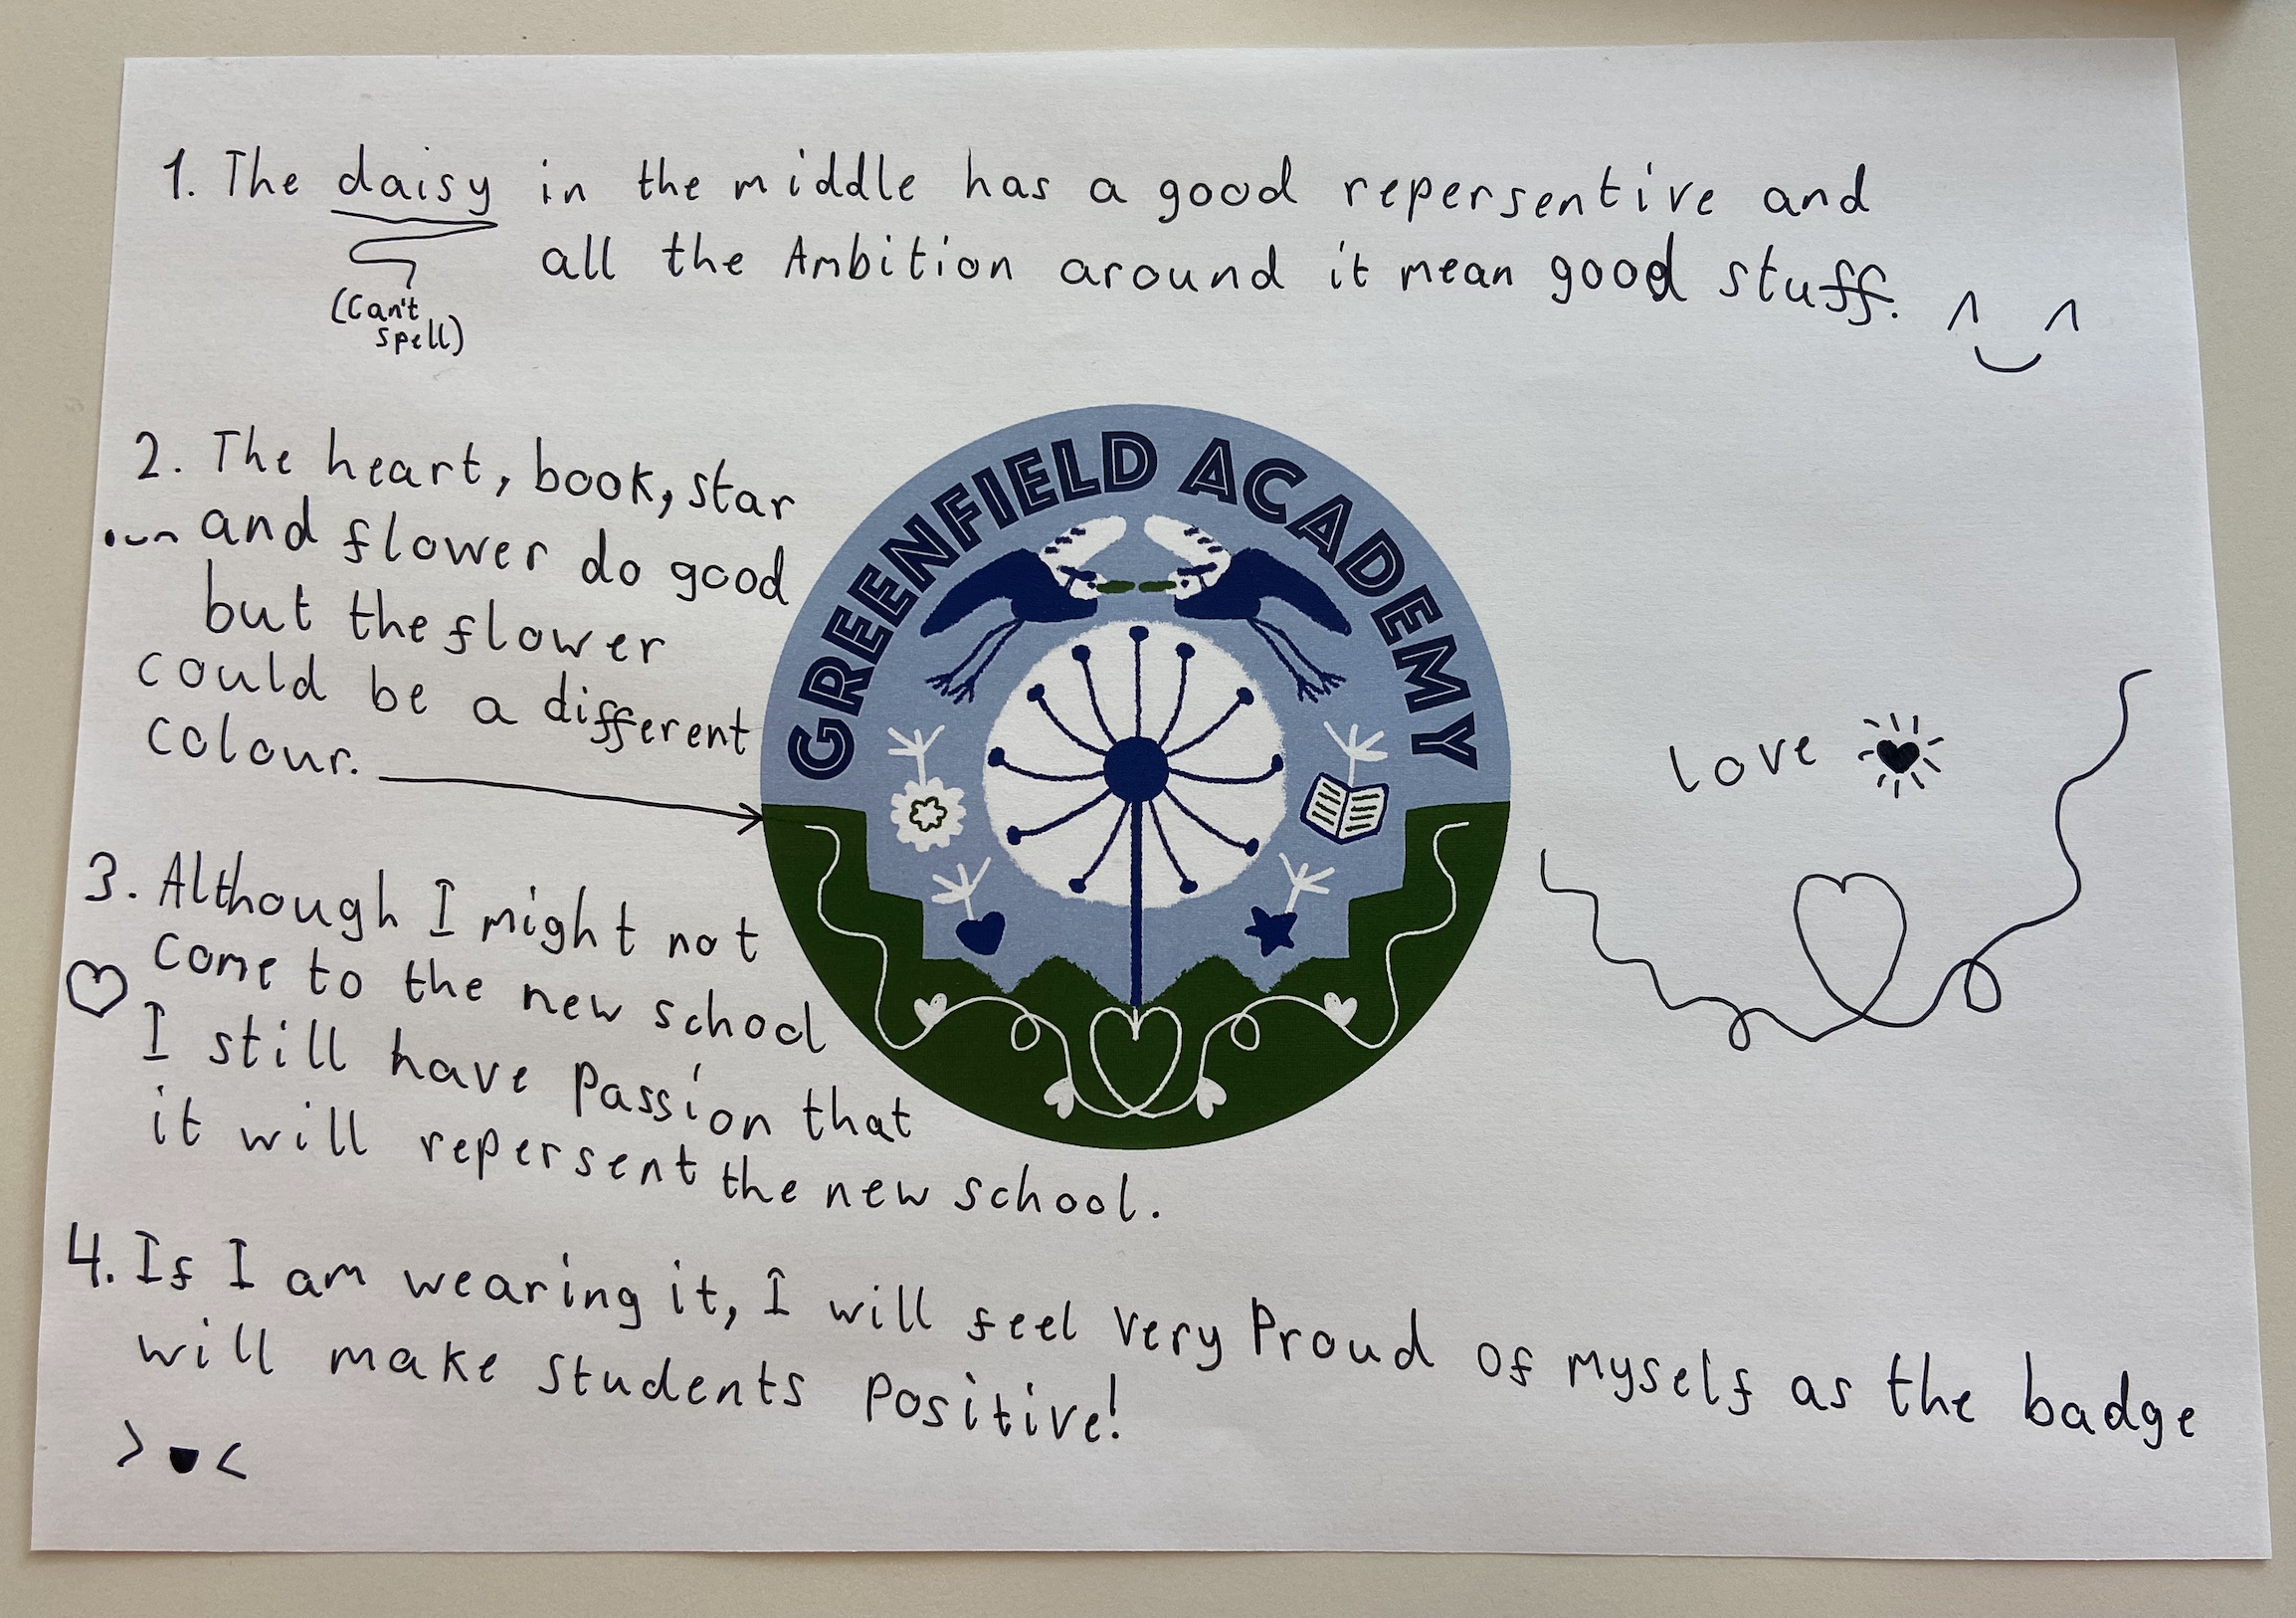 1. The daisy in the middle has a good repersentive and
(Can't
spell)
all the Ambition around it mean good stuff.
2. The heart, book, star
and flower do good
but the flower
could be a different
colour.
GREENFIELD ACADEMY
love
3. Although I might not
come to the new school
I still have Passion that
it will repersent the new school.
4. If I am wearing it, I will feel very Proud of myself as the badge
will make students Positive!